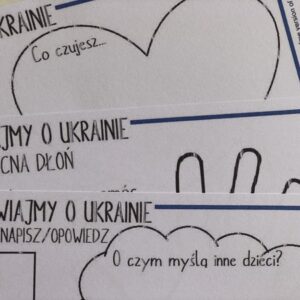 KRAINIE
Co czujesz...
AJMY O UKRAINIE
CNA DŁOŃ
WIAJMY O UKRAINIE
NAPISZ/OPOWIEDZ
O czym myślą inne dzieci?
version of